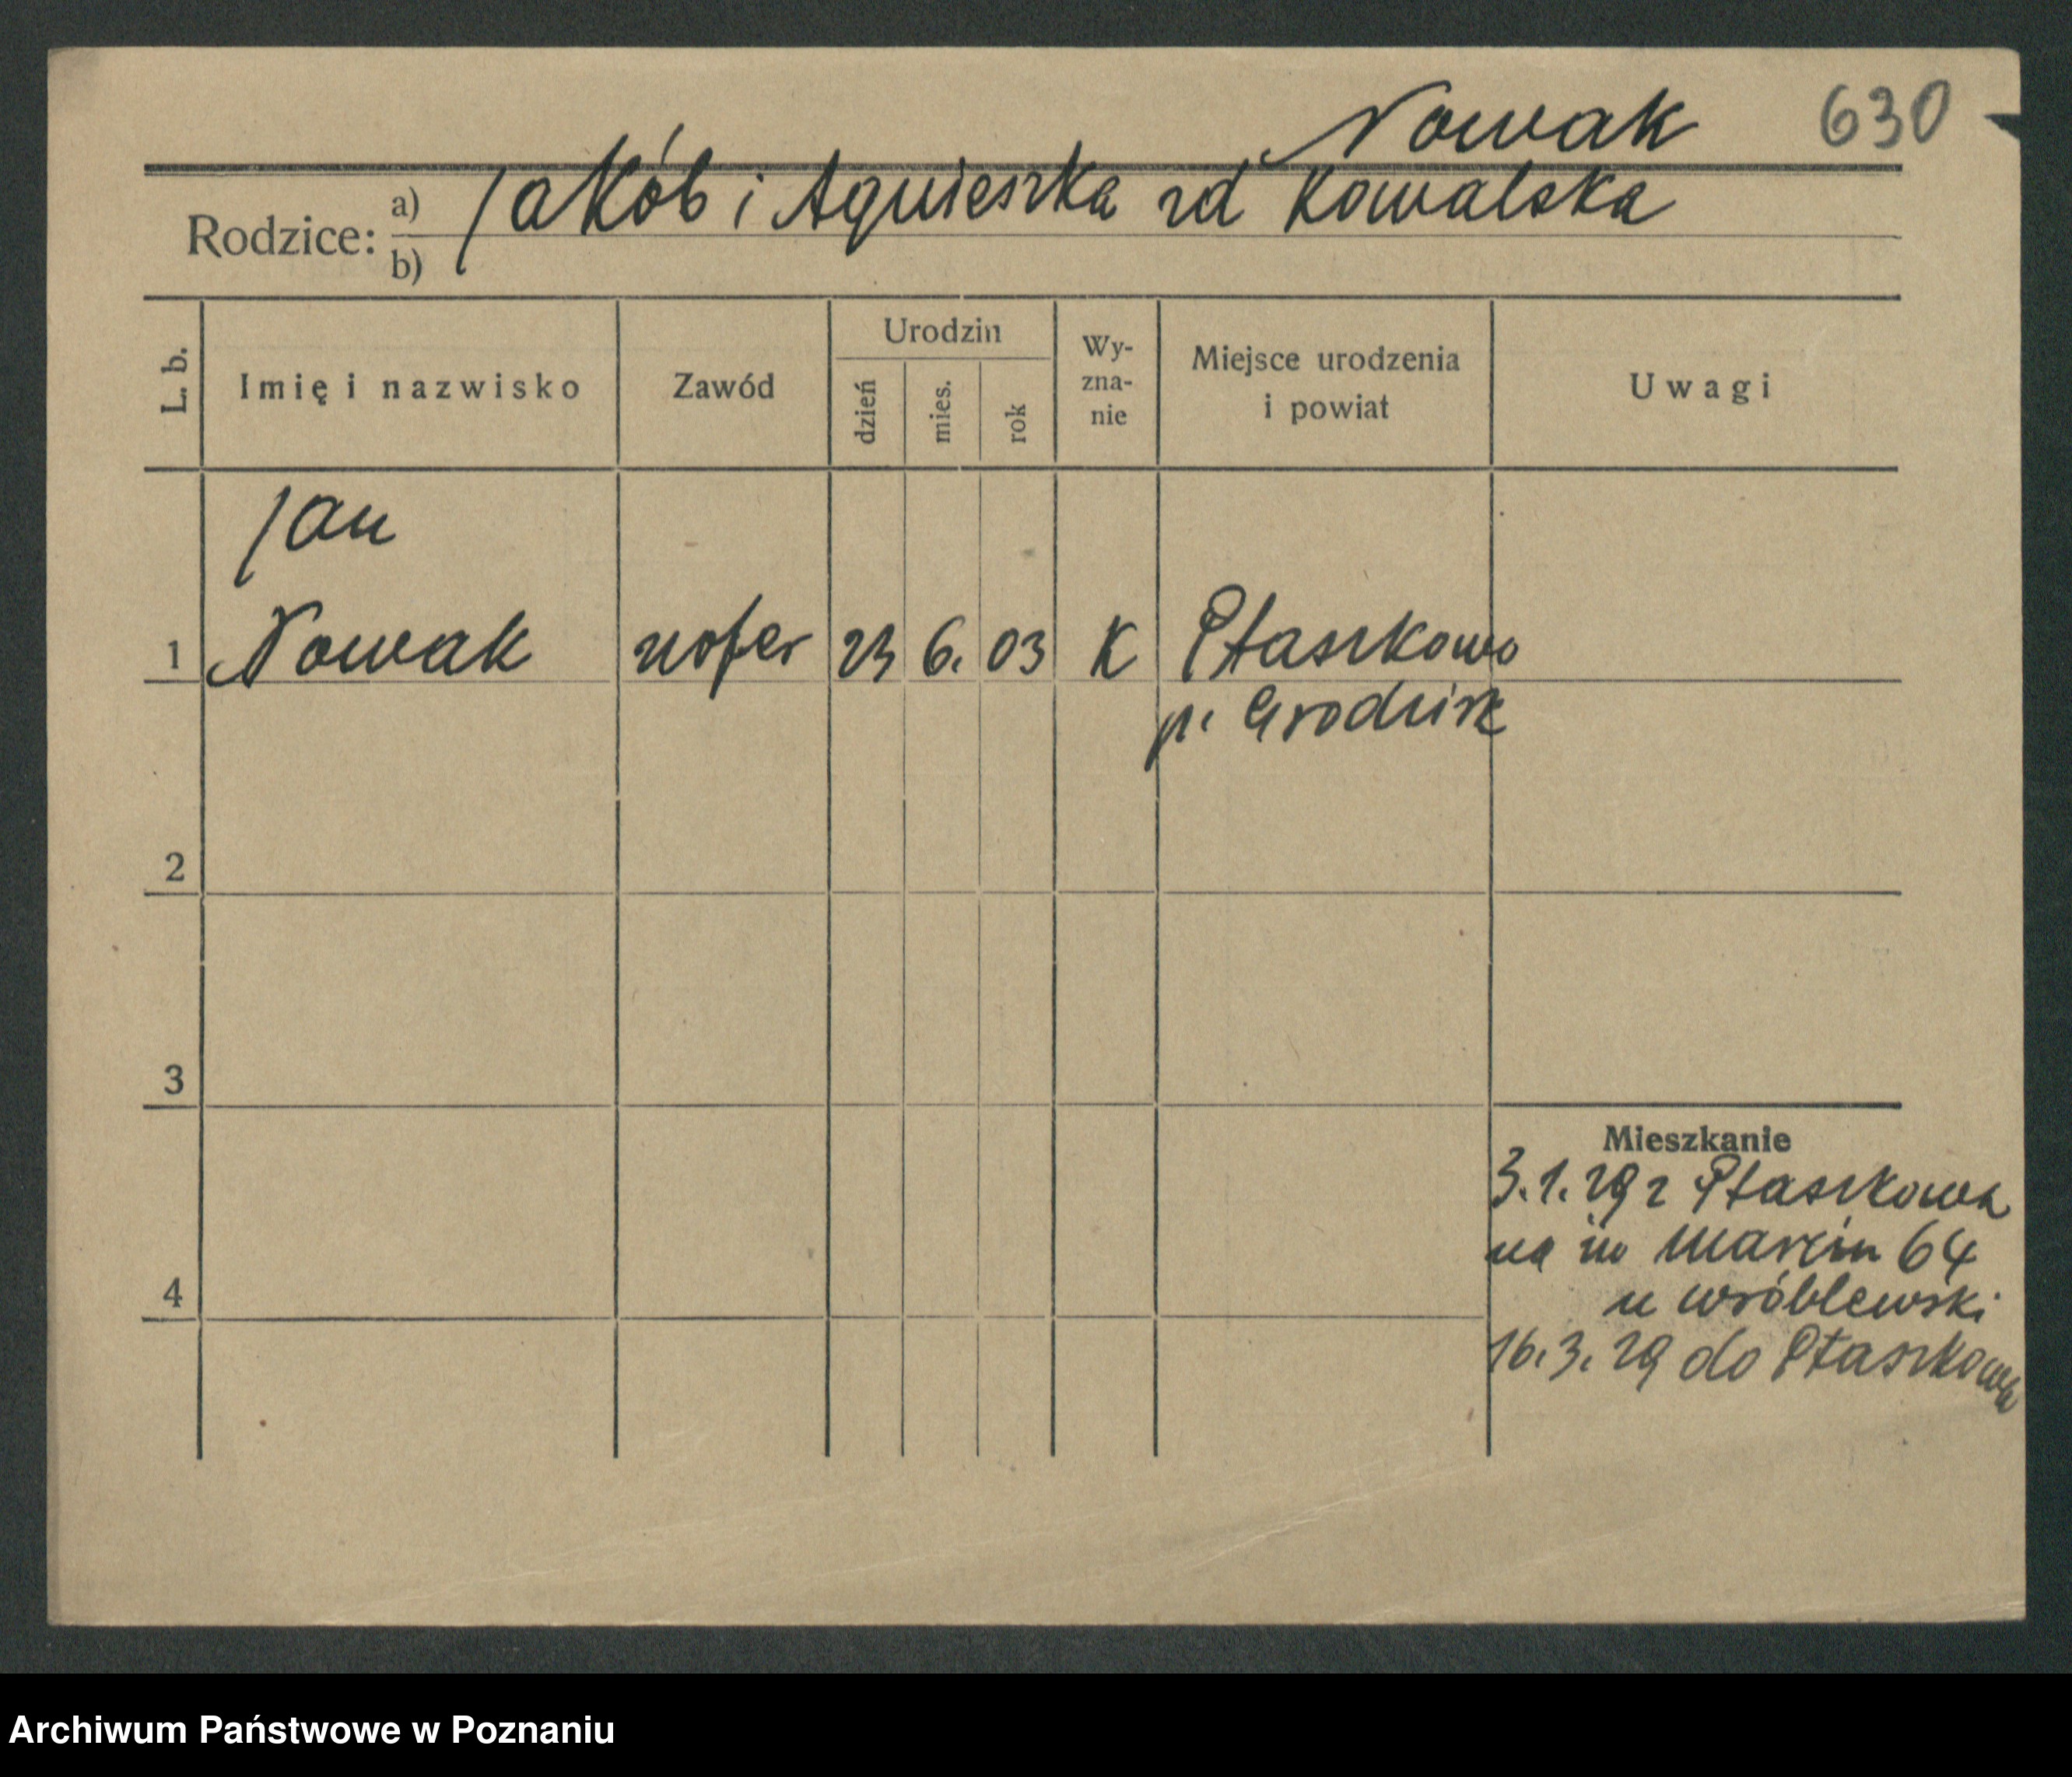 Nowak 630
Rodzice: a) Jakób i Agnieszka zd Kowalska
b)
L. b. Imię i nazwisko Zawód Urodzin dzień mies. rok Wy-zna-nie Miejsce urodzenia i powiat Uwagi
Jan
1 Nowak szofer 23 6. 03 K Ptaszkowo
p. Grodzisk
2
3
Mieszkanie
3.1.29 z Ptaszkowa
na św Marcin 64
4 u Wróblewski
16.3.29 do Ptaszkowa
Archiwum Państwowe w Poznaniu